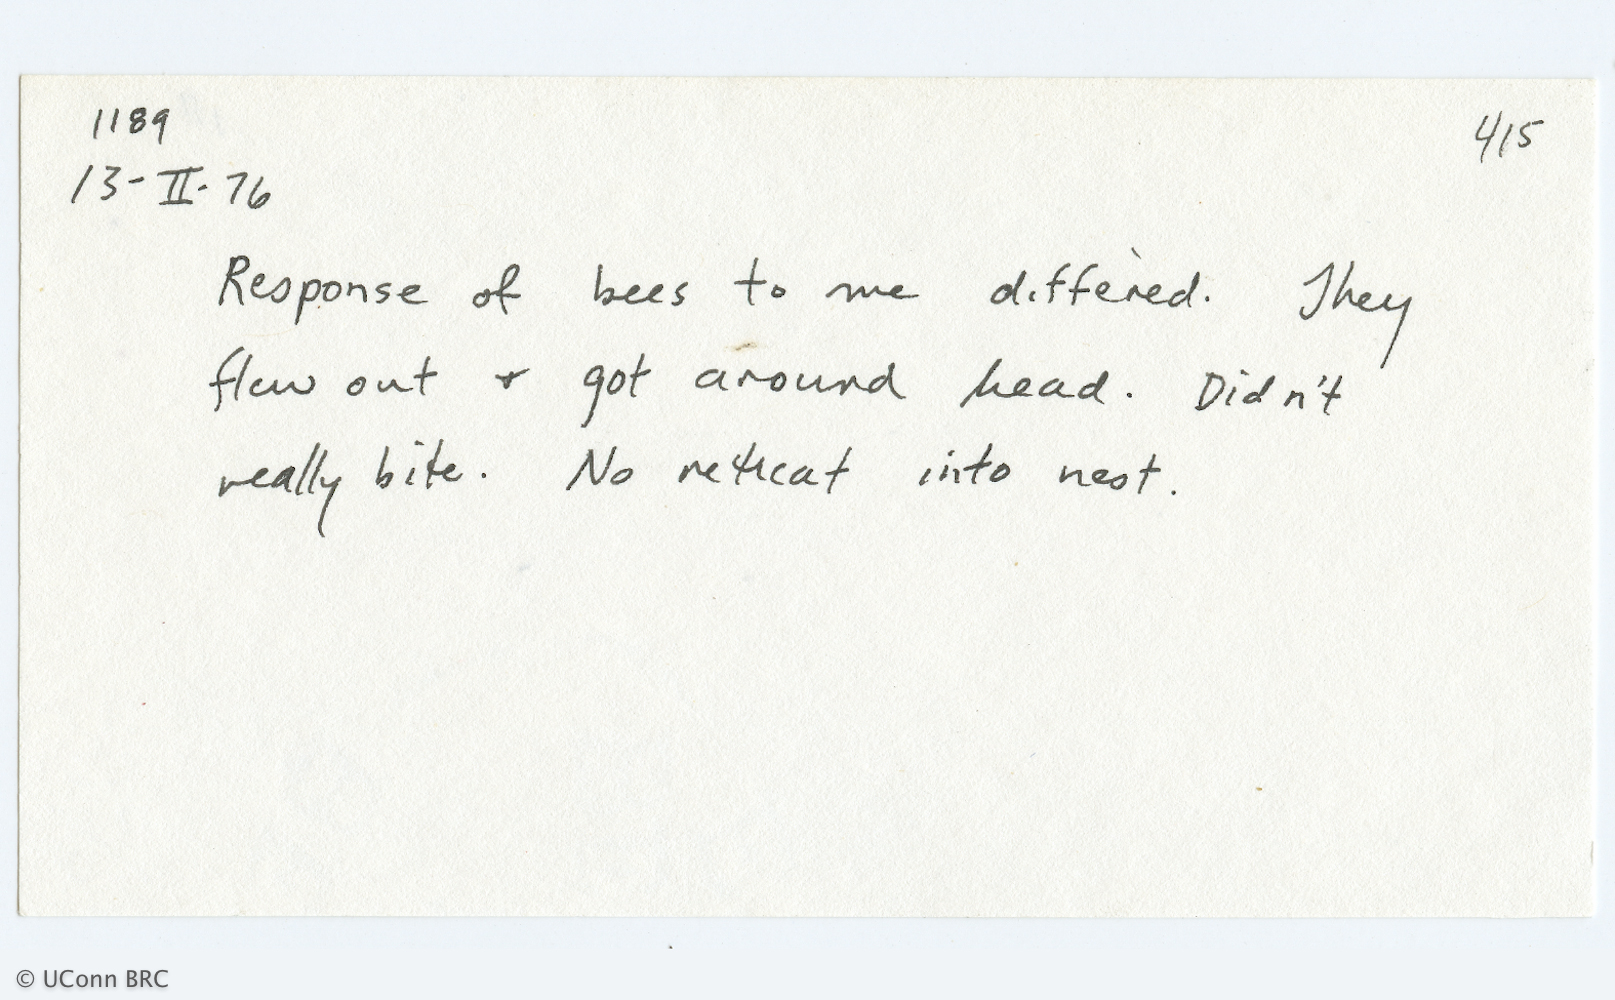 1189
415
13-II-76
Response of bees to me differed. They
flew out & got around head. Didn't
really bite. No retreat into nest.
© UConn BRC